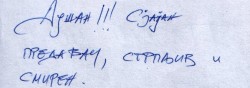 Аршан!!! Сјајан
предавач, стрпљив и
смирен.